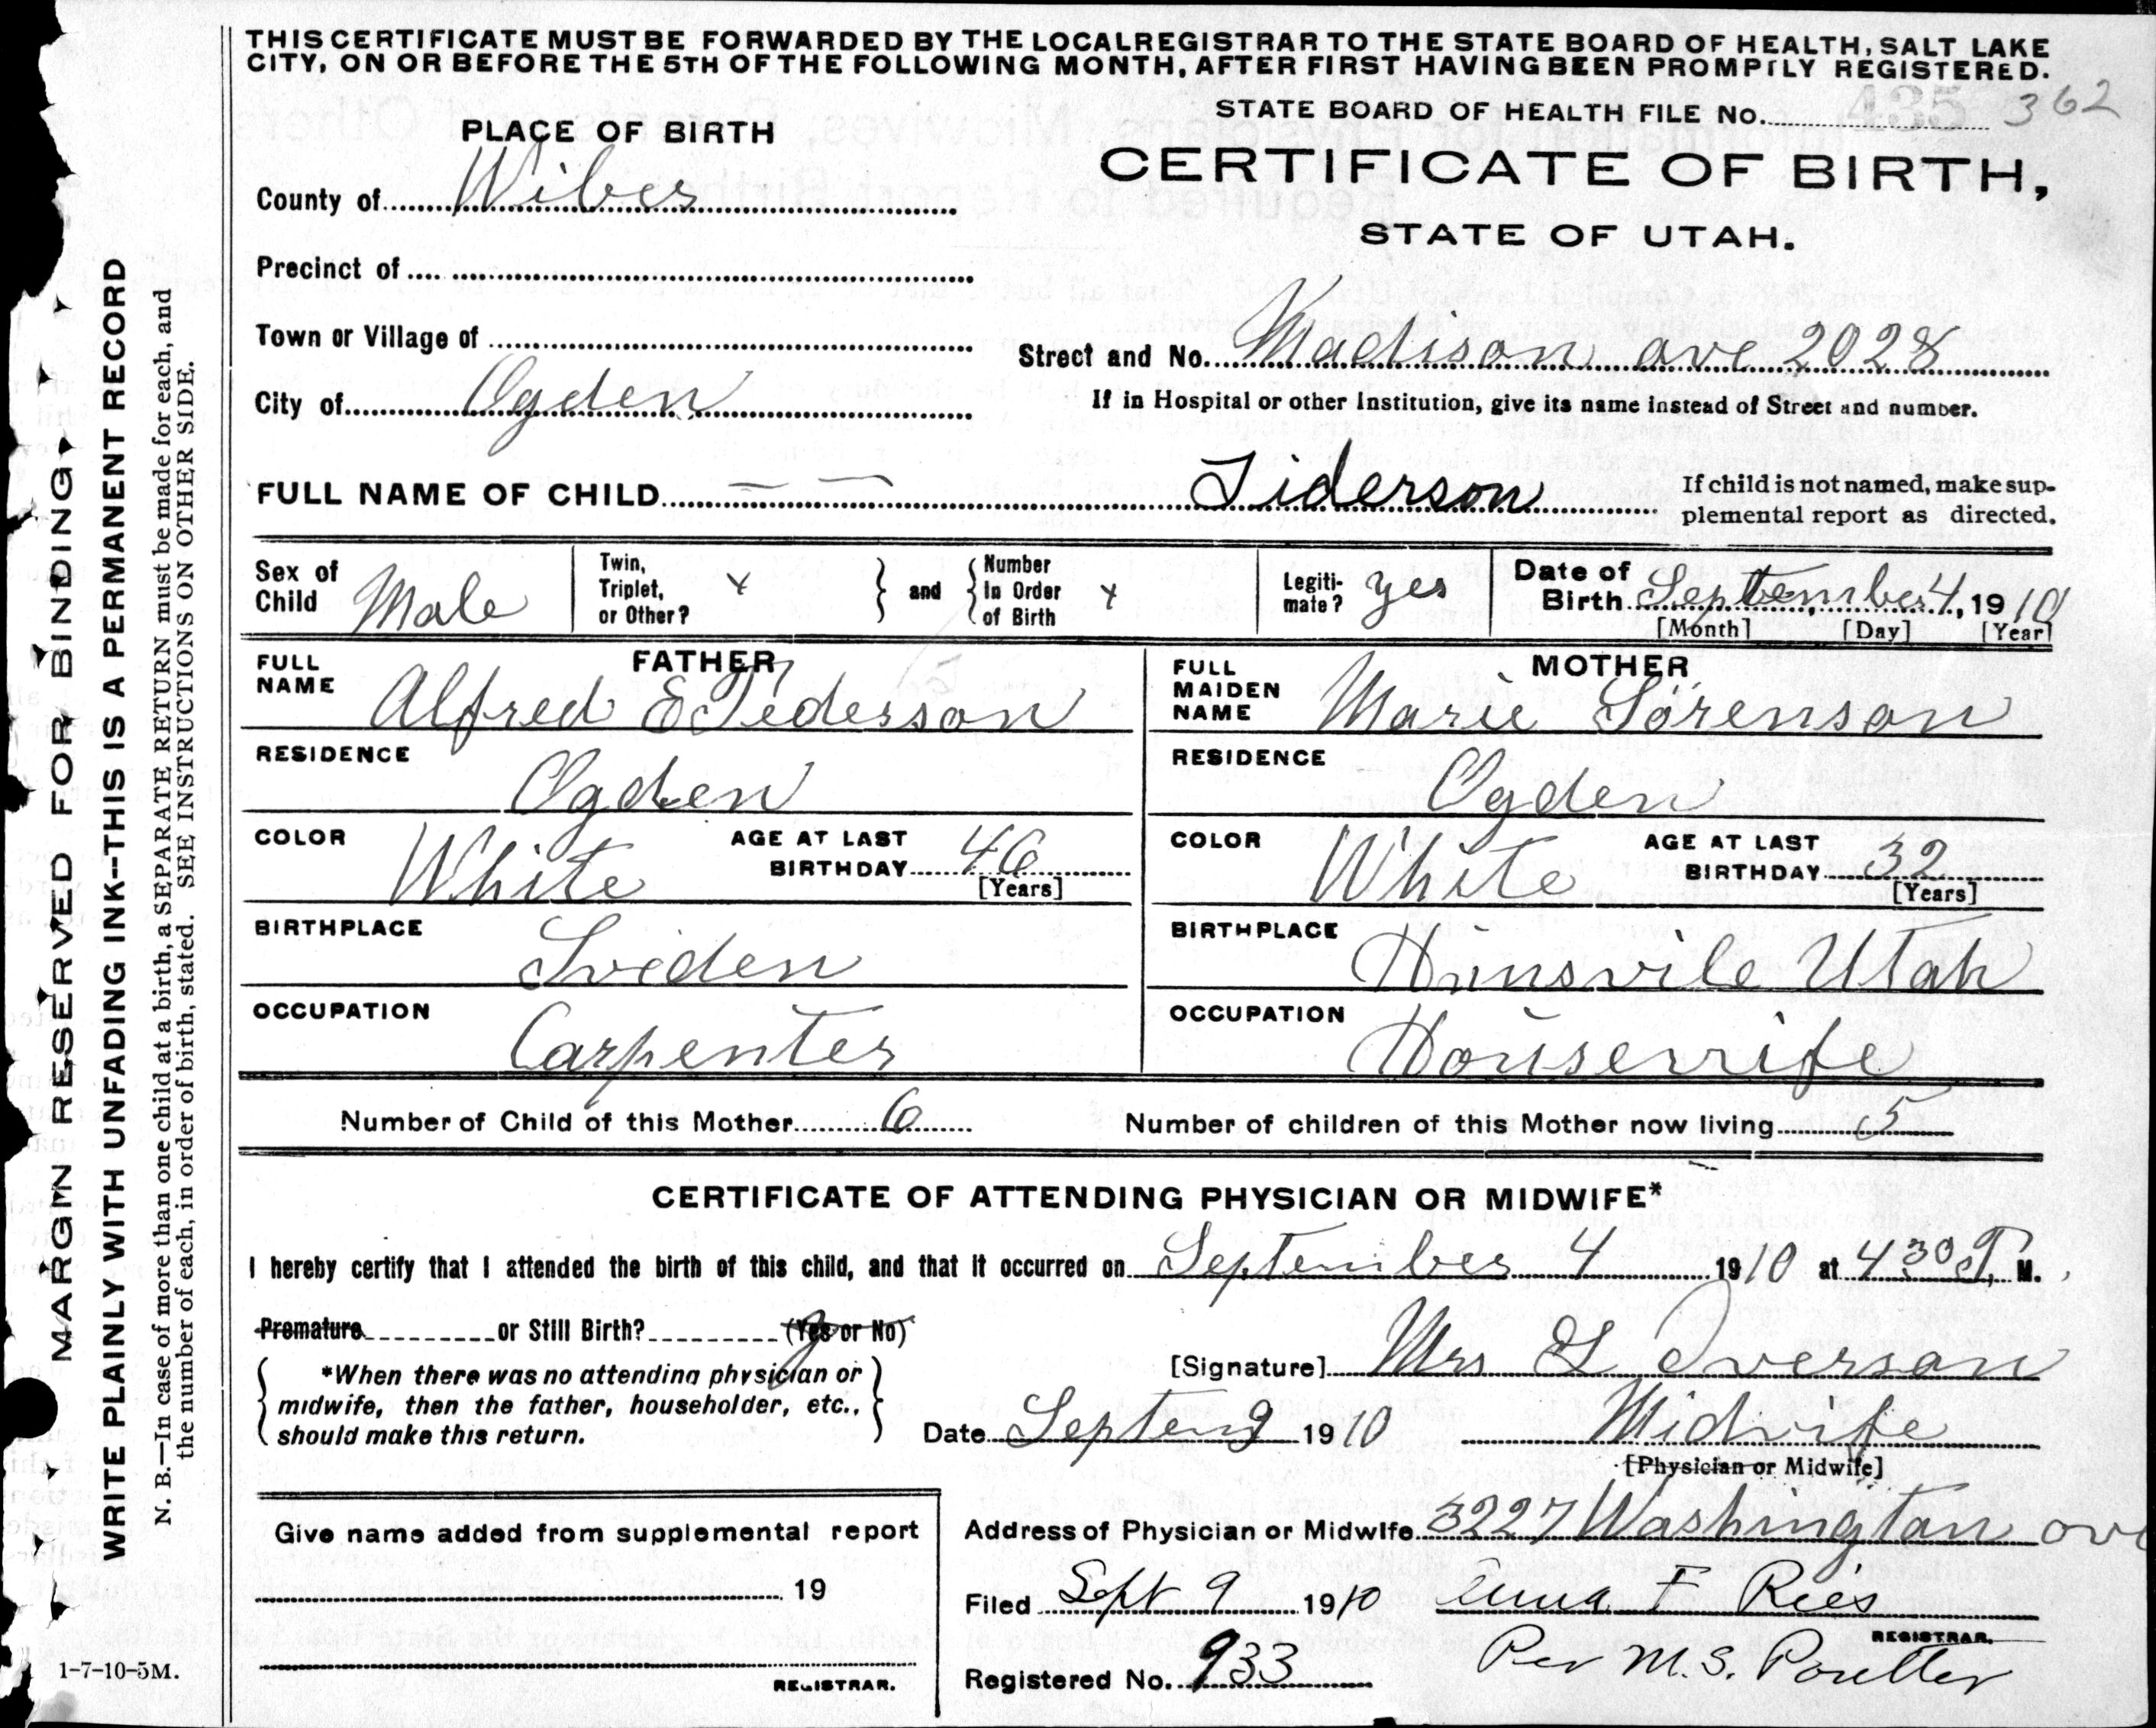 THIS CERTIFICATE MUST BE FORWARDED BY THE LOCAL REGISTRAR TO THE STATE BOARD OF HEALTH, SALT LAKE
CITY, ON OR BEFORE THE 5TH OF THE FOLLOWING MONTH, AFTER FIRST HAVING BEEN PROMPTLY REGISTERED.
STATE BOARD OF HEALTH FILE No. 435 362
PLACE OF BIRTH
CERTIFICATE OF BIRTH,
STATE OF UTAH.
County of Wiber
Precinct of
Town or Village of
Street and No. Madison ave 2028
City of Ogden
If in Hospital or other Institution, give its name instead of Street and number.
FULL NAME OF CHILD — — Tiderson
If child is not named, make sup-
plemental report as directed.
Sex of Child Male
Twin, Triplet, or Other? x
and Number In Order of Birth x
Legiti-mate? yes
Date of Birth September 4, 1910
[Month] [Day] [Year]
FATHER
FULL NAME Alfred E Tiderson
RESIDENCE Ogden
COLOR White AGE AT LAST BIRTHDAY 46 [Years]
BIRTHPLACE Sviden
OCCUPATION Carpenter
MOTHER
FULL MAIDEN NAME Marie Sørenson
RESIDENCE Ogden
COLOR White AGE AT LAST BIRTHDAY 32 [Years]
BIRTHPLACE Hunsvile Utah
OCCUPATION Housewife
Number of Child of this Mother 6 Number of children of this Mother now living 5
CERTIFICATE OF ATTENDING PHYSICIAN OR MIDWIFE*
I hereby certify that I attended the birth of this child, and that it occurred on September 4 1910 at 4 30 P. M.
Premature or Still Birth? (Yes or No)
*When there was no attending physician or
midwife, then the father, householder, etc.,
should make this return.
[Signature] Mrs Iverson
Date Septem 9 1910 Midwife
[Physician or Midwife]
Give name added from supplemental report
19
REGISTRAR.
Address of Physician or Midwife 3227 Washington ave
Filed Sept 9 1910 Anna F Ries
REGISTRAR.
Registered No. 933 Per M. S. Poulter
MARGIN RESERVED FOR BINDING
WRITE PLAINLY WITH UNFADING INK--THIS IS A PERMANENT RECORD
N. B.—In case of more than one child at a birth, a SEPARATE RETURN must be made for each, and
the number of each, in order of birth, stated. SEE INSTRUCTIONS ON OTHER SIDE.
1-7-10-5M.